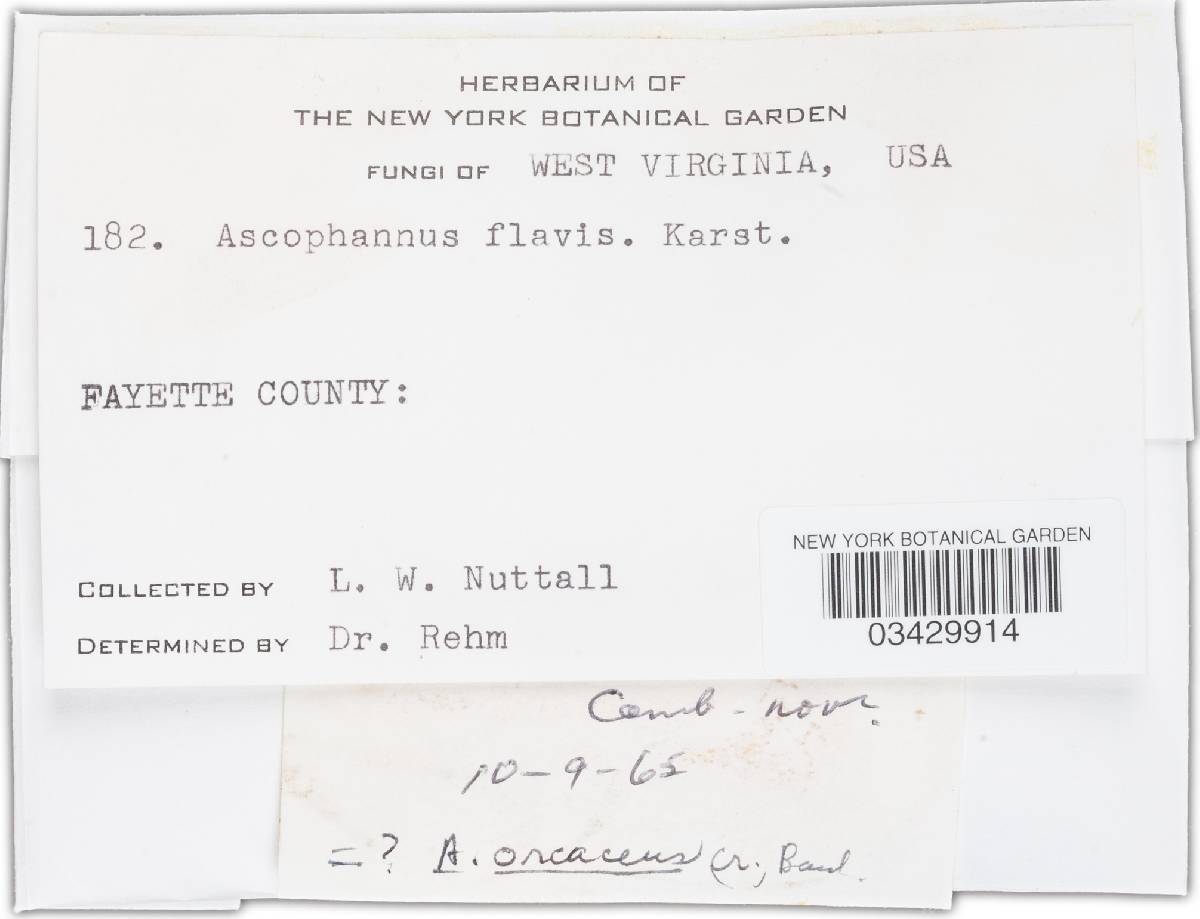 HERBARIUM OF
THE NEW YORK BOTANICAL GARDEN
FUNGI OF WEST VIRGINIA, USA
182. Ascophannus flavis. Karst.
FAYETTE COUNTY:
NEW YORK BOTANICAL GARDEN
03429914
COLLECTED BY L. W. Nuttall
DETERMINED BY Dr. Rehm
Comb. nov.
10-9-65
=? A.